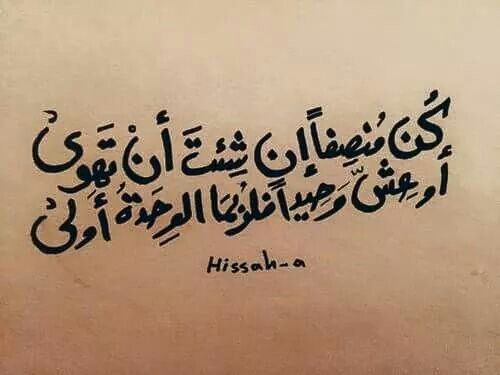 كُن مُنصِفاً إن شِئتَ أنْ تَهَوى
أو عِشّ وَحِيداً فلرُبمَا الوِحدَةُ أولى
Hissah-a